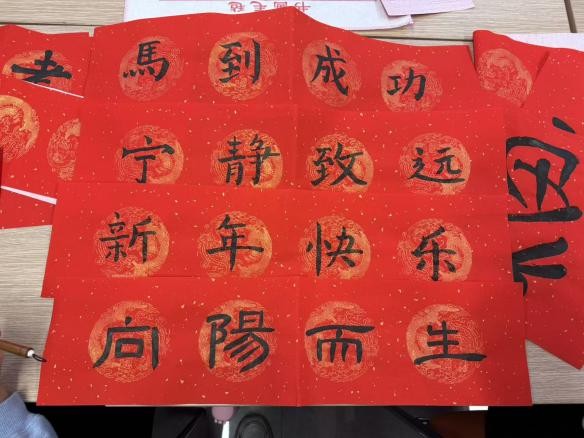 书画毛毡
馬到成功
宁静致远
新年快乐
向陽而生